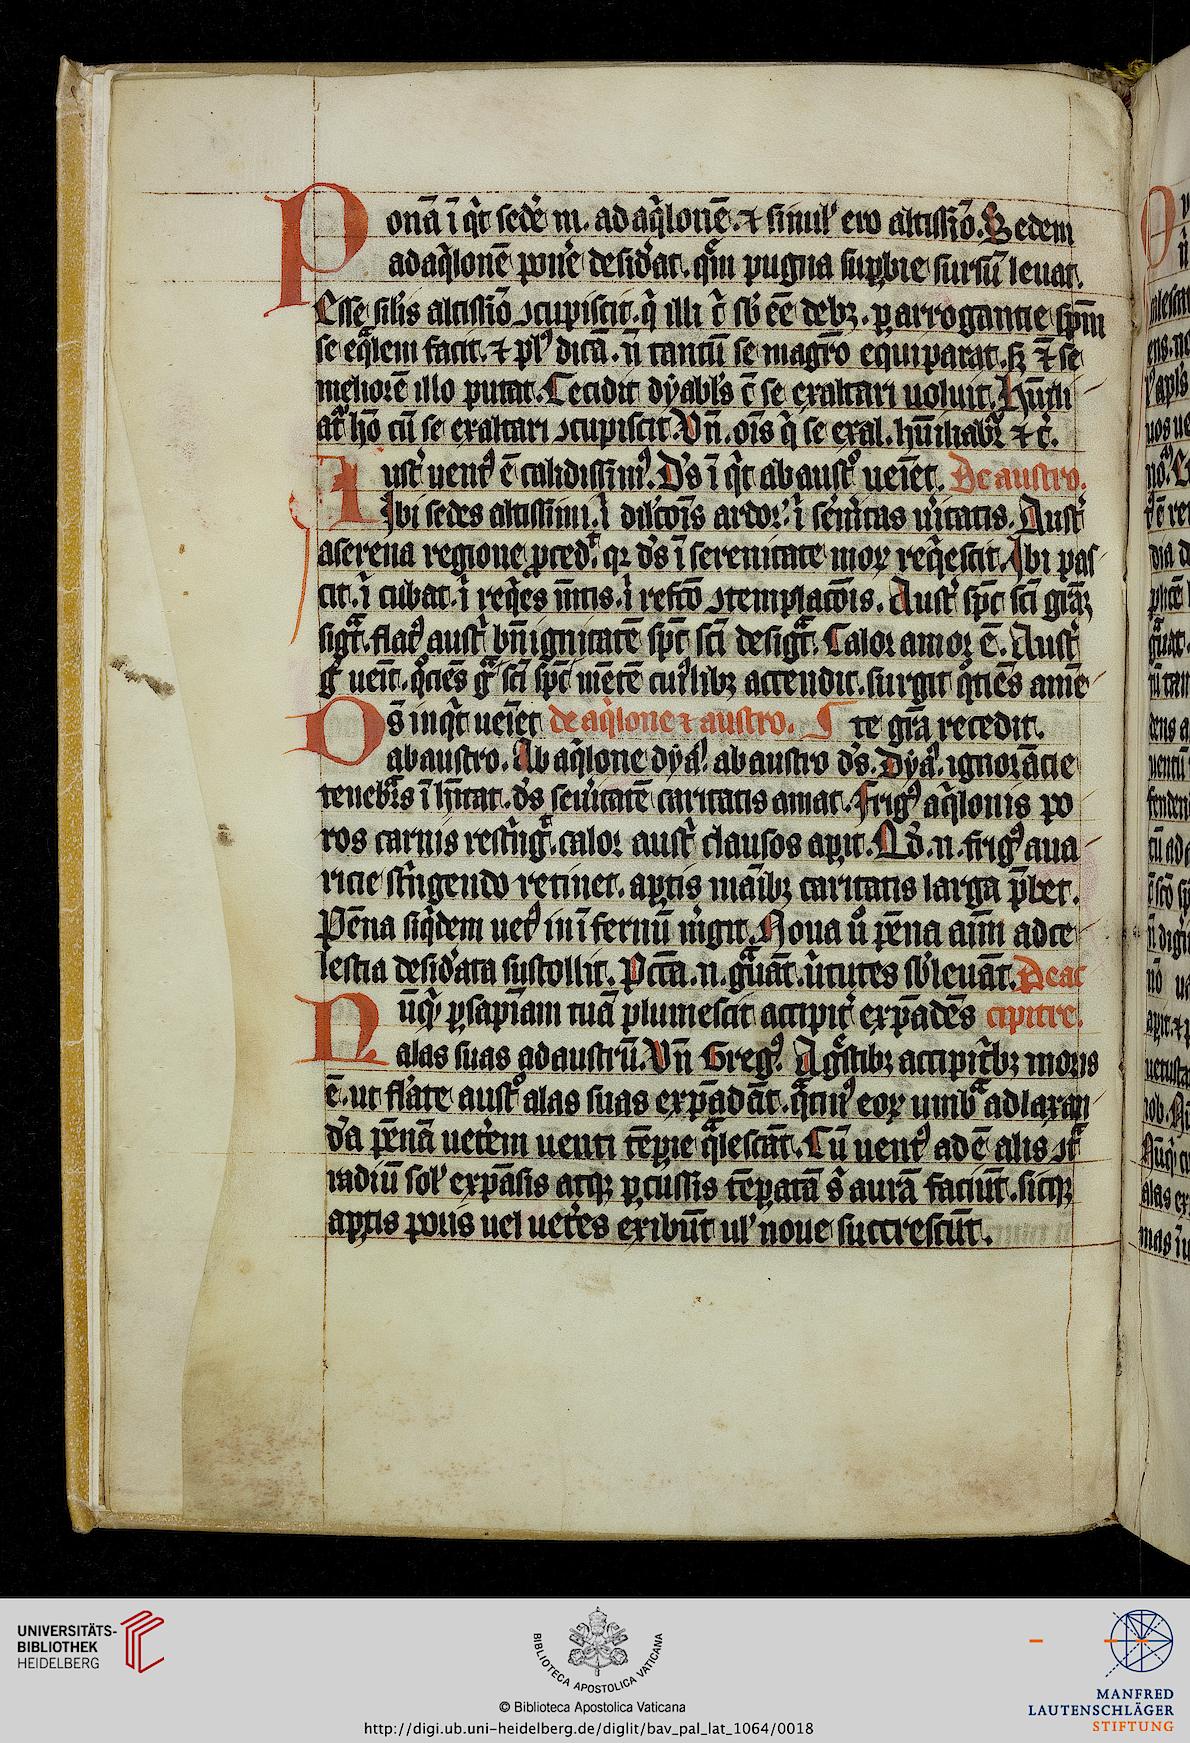 Ponā ī q̇t sedē m. ad aq̇lonē. ⁊ simul' ero altissīo. Sedem
ad aq̇lonē ponē desid'at. qm̄ pugna sup̱bie sursū leuat.
Esse sil̄is altissīo ɔcupiscit. q̇ illi c̄ sb' ēē debꝫ. p̱ arrogantie sp̄m
se eq̇lem facit. ⁊ pl' dicā. n̄ tantū se magr̄o equiparat. sꝫ ⁊ se
meliorē illo putat. Cecidit dyabl's c̄ se exaltari uoluit. Hūili
at' hō cū se exaltari ɔcupiscit. Vn̄. oīs q̇ se exal. hūiliabit' ⁊ c̄.
Aust' uent' ē calidissim'. D's ī q̇t ab aust° ueīet. De austro.
Ibi sedes altissimi. ī dil'cōis ardor'. ī s'enitas u'itatis. Aust'
a serena regione p̱ced't. qꝛ d's ī serenitate moꝝ req̇escit. Ibi pas
cit. ī cubat. ī req̇es m̄tis. ī refc̄o ɔtemplacōis. Aust' sp̄c sc̄i gr̄aꝫ
sigt̄. flat' aust' bn̄ignitatē sp̄c sc̄i desigt̄. Calor amor ē. Aust'
g° ueīt. q°ciēs gr̄ sc̄i sp̄c mētē cui'libꝫ accendit. surgit q°ciēs a mē
D's inq̇t ueīet de aq̇lone ⁊ austro. te gr̄a recedit.
ab austro. Ab aq̇lone dya'. ab austro d's. Dya'. ignorācie
tenebr̄s īh'itat. d's seu'itatē caritatis amat. Frig' aq̇lonis po
ros carnis rest'ngt̄. calor aust' clausos ap̱it. Qd'. n. frig' aua
ricie st'ngendo retinet. ap̱tis māibꝫ caritatis larga p̄bet.
Pēna siq̇dem uet' in īfernū m'git. Noua u° pēna aīm ad ce
lestia desid'ata sustollit. Pctā. n. gͣuāt. u'tutes sb'leuāt. De ac
Nūq̇' p̱ sapīam tuā plumescit accipit' expādēs cipitre.
alas suas ad austrū. Vn̄ Greg'. Agͣstibꝫ accipit'bꝫ moris
ē. ut flāte aust° alas suas expādāt. qͣtin' eoꝝ mēbͣ ad laxan
d'a pēnā uet'em uenti tēpie qͣlescāt. Cū uent' ad ē alis ɔtͣ
radiū sol' expāsis atqꝫ p̱cussis tēp̱atā s' aurā faciūt. sicqꝫ
ap̱tis poris uel uet'es exibūt ul' noue succrescūt.
UNIVERSITÄTS-
BIBLIOTHEK
HEIDELBERG
BIBLIOTECA APOSTOLICA VATICANA
© Biblioteca Apostolica Vaticana
http://digi.ub.uni-heidelberg.de/diglit/bav_pal_lat_1064/0018
MANFRED
LAUTENSCHLÄGER
STIFTUNG